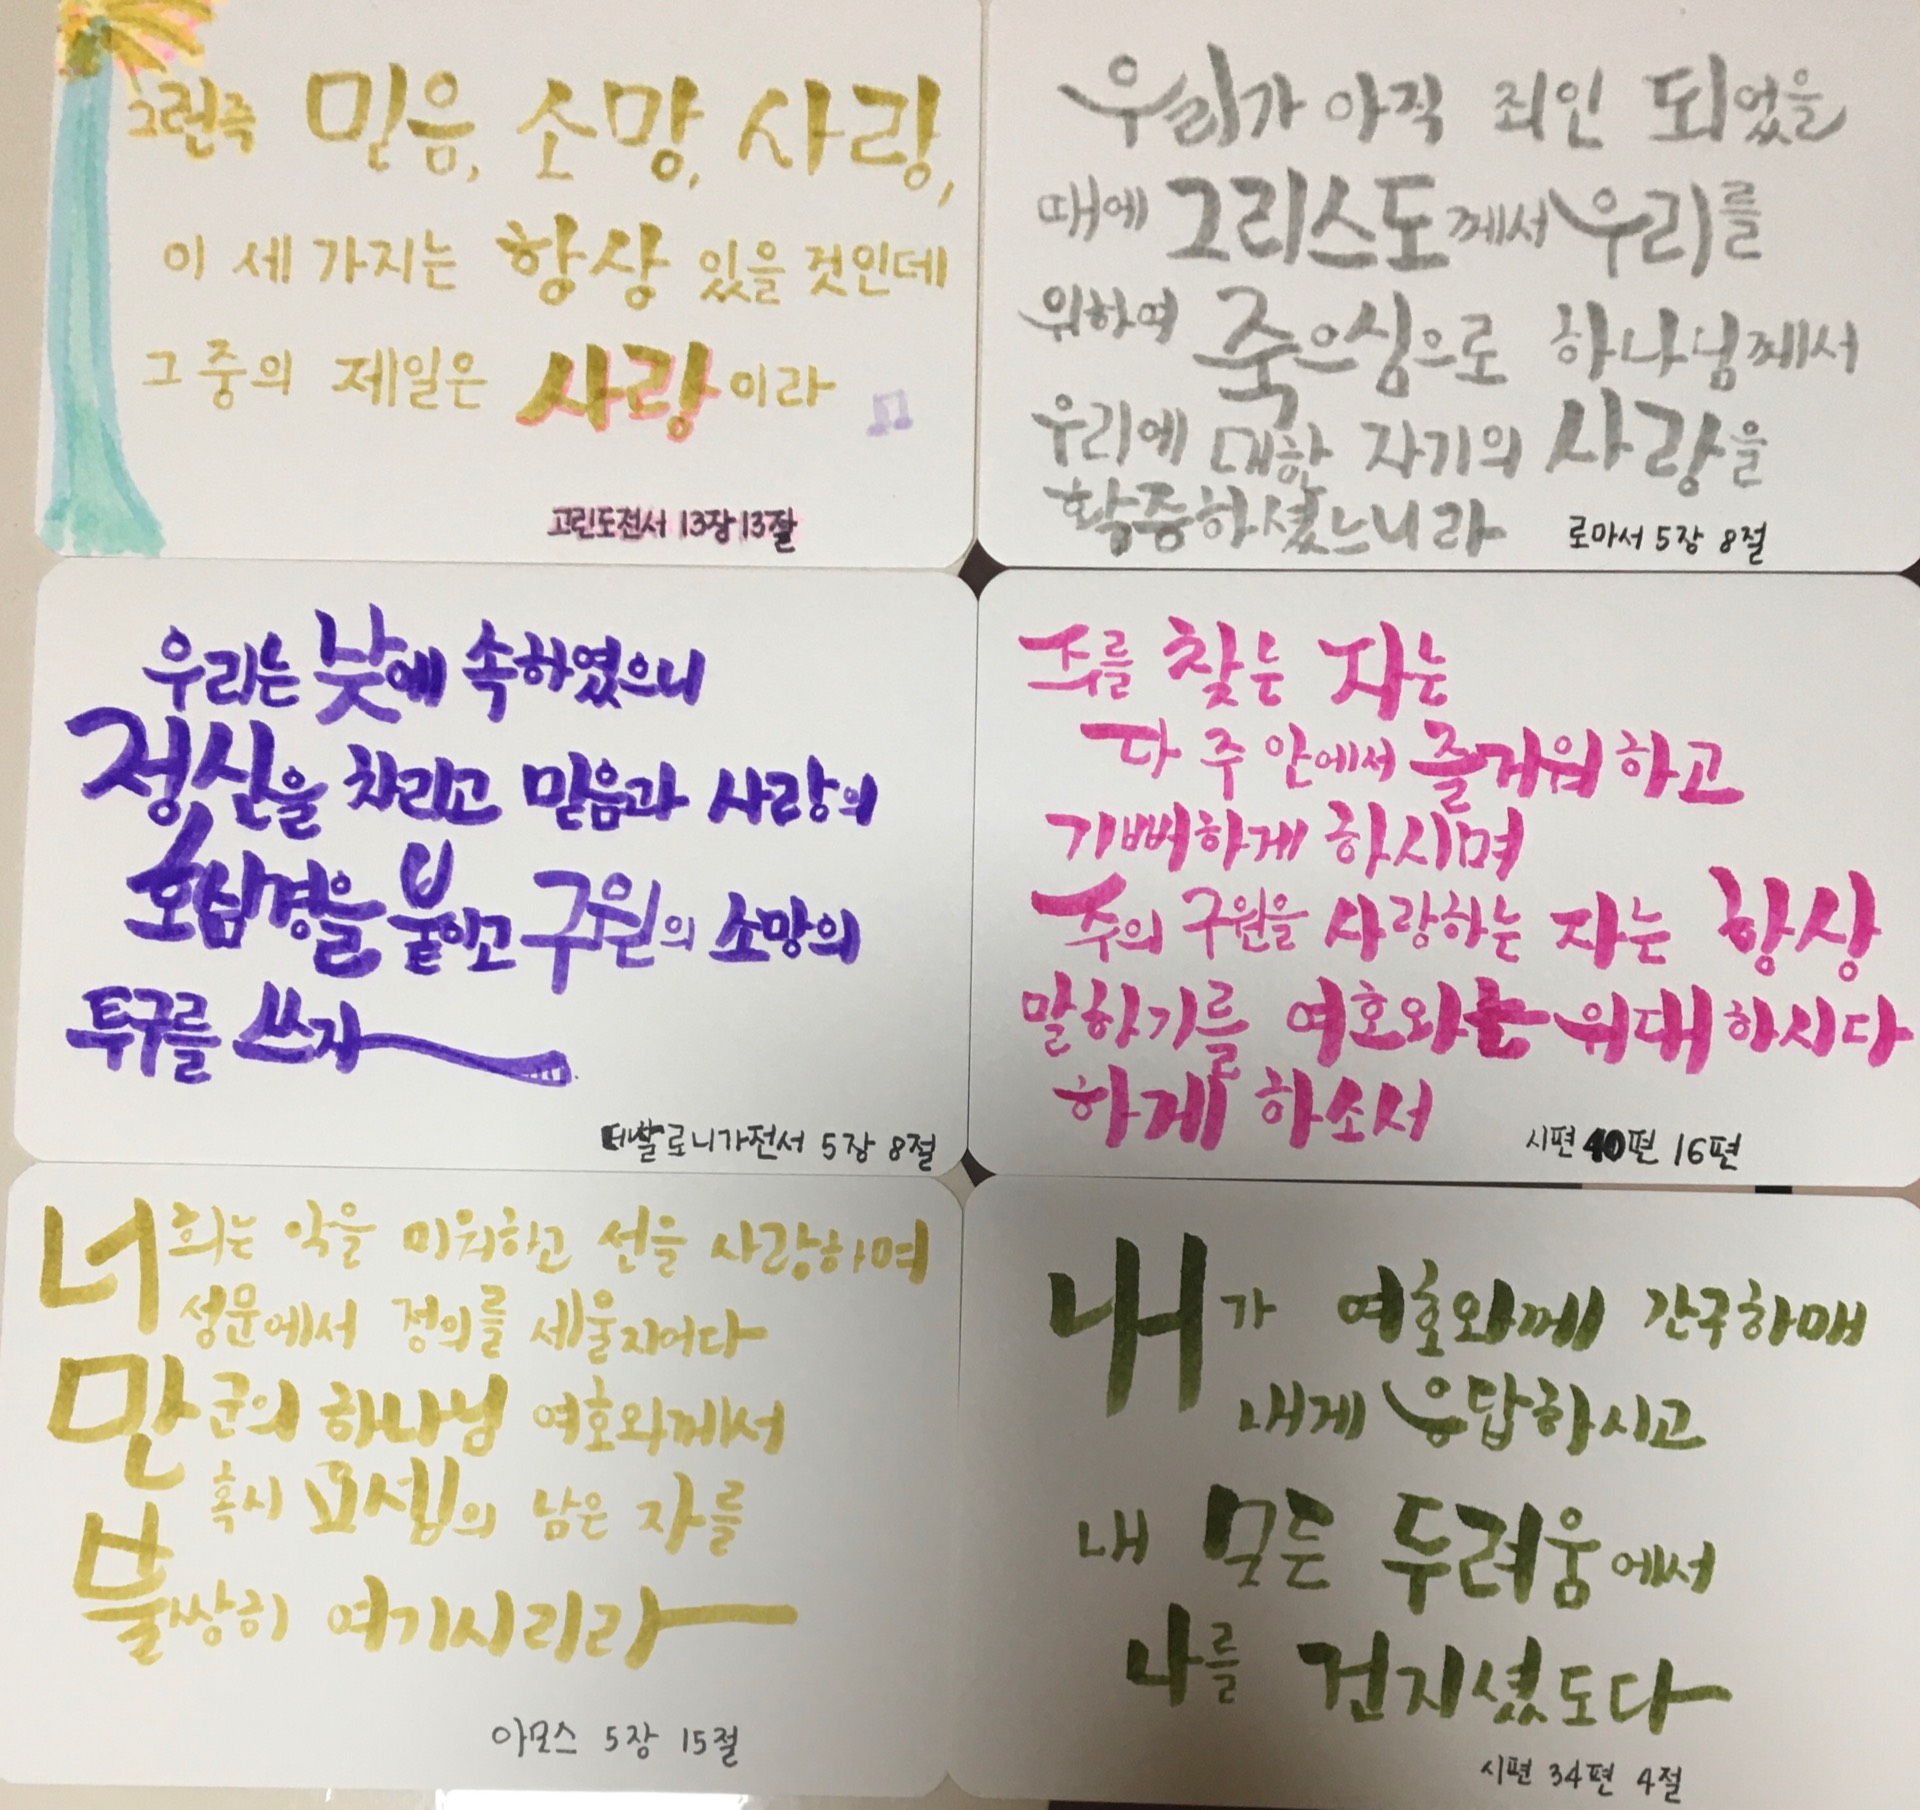 그런즉 믿음, 소망, 사랑,
이 세 가지는 항상 있을 것인데
그 중의 제일은 사랑이라
고린도전서 13장 13절
우리가 아직 죄인 되었을
때에 그리스도께서 우리를
위하여 죽으심으로 하나님께서
우리에 대한 자기의 사랑을
확증하셨느니라
로마서 5장 8절
우리는 낮에 속하였으니
정신을 차리고 믿음과 사랑의
호심경을 붙이고 구원의 소망의
투구를 쓰자
데살로니가전서 5장 8절
주를 찾는 자는
다 주 안에서 즐거워하고
기뻐하게 하시며
주의 구원을 사랑하는 자는 항상
말하기를 여호와를 위대하시다
하게 하소서
시편 40편 16편
너희는 악을 미워하고 선을 사랑하며
성문에서 정의를 세울지어다
만군의 하나님 여호와께서
혹시 요셉의 남은 자를
불쌍히 여기시리라
아모스 5장 15절
내가 여호와께 간구하매
내게 응답하시고
내 모든 두려움에서
나를 건지셨도다
시편 34편 4절